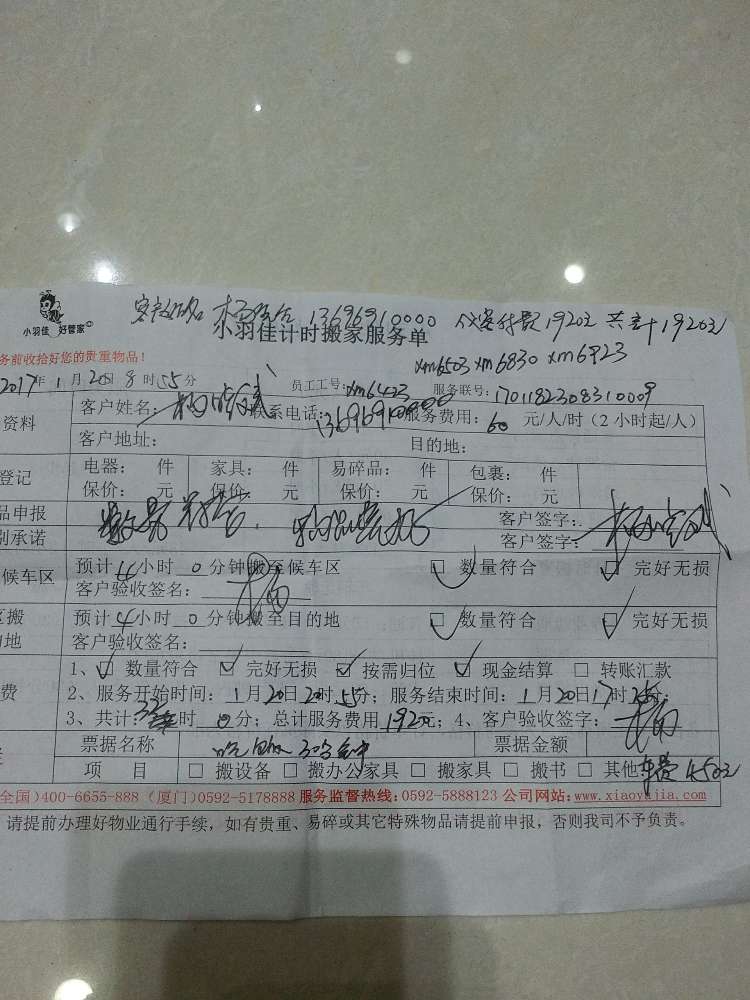 小羽佳 好管家
13696910000 共计1920元
小羽佳计时搬家服务单
务前收拾好您的贵重物品！
xm6503 xm6830 xm6923
2017年1月20日8时55分 员工工号: xm6423 服务联号: 1701182308310009
资料 客户姓名: 联系电话: 13696910000 服务费用: 60 元/人/时(2小时起/人)
客户地址: 目的地:
登记 电器: 件 家具: 件 易碎品: 件 包裹: 件
保价: 元 保价: 元 保价: 元 保价: 元
品申报 客户签字:
别承诺 客户签字:
候车区 预计4小时0分钟搬至候车区 □数量符合 □完好无损
客户验收签名:
区搬 预计4小时0分钟搬至目的地 □数量符合 □完好无损
的地 客户验收签名:
1、□数量符合 □完好无损 □按需归位 □现金结算 □转账汇款
费 2、服务开始时间: 1月20日 时55分; 服务结束时间: 1月20日17时 分;
3、共计: 32时0分; 总计服务费用1920元; 4、客户验收签字:
票据名称 票据金额
项 目 □搬设备 □搬办公家具 □搬家具 □搬书 □其他 车费450元
全国)400-6655-888 (厦门)0592-5178888 服务监督热线:0592-5888123 公司网站:www.xiaoyujia.com
请提前办理好物业通行手续，如有贵重、易碎或其它特殊物品请提前申报，否则我司不予负责。